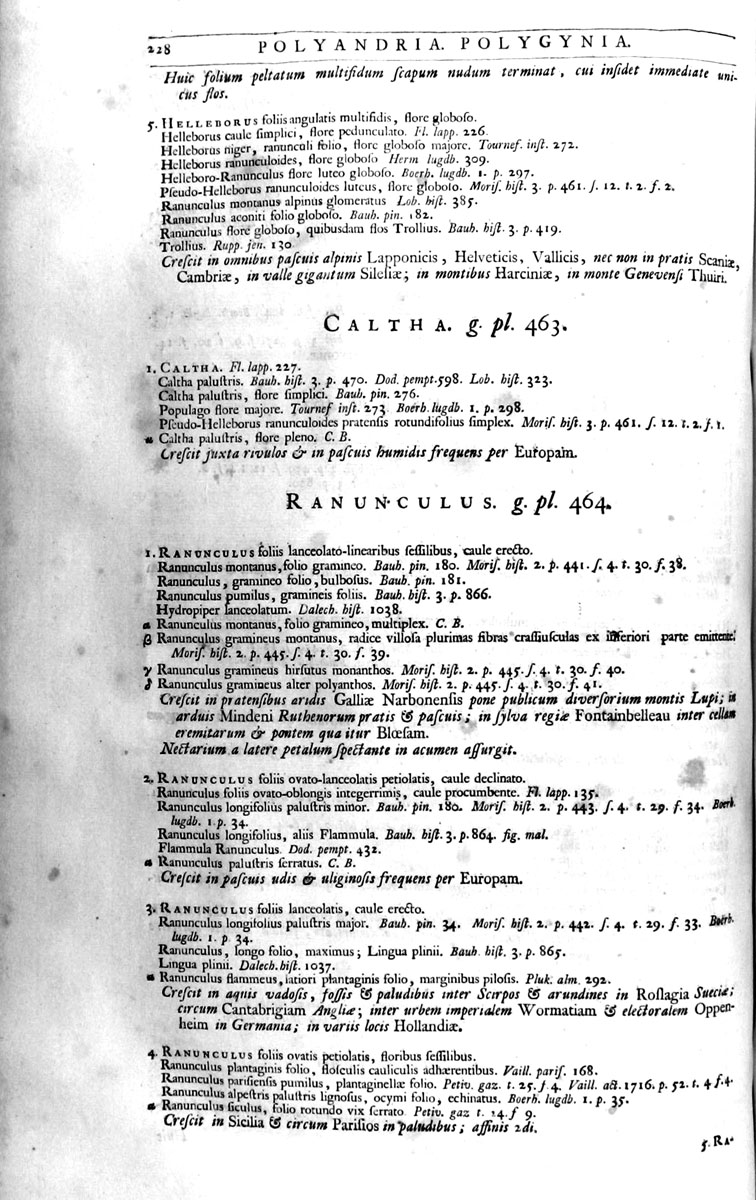 228 POLYANDRIA. POLYGYNIA.
Huic folium peltatum multifidum ſcapum nudum terminat, cui inſidet immediate uni-
cus flos.
5. HELLEBORUS foliis angulatis multifidis, flore globoſo.
Helleborus caule ſimplici, flore pedunculato. Fl. lapp. 226.
Helleborus niger, ranunculi folio, flore globoſo majore. Tournef. inſt. 272.
Helleborus ranunculoides, flore globoſo Herm lugdb. 309.
Helleboro-Ranunculus flore luteo globoſo. Boerh. lugdb. 1. p. 297.
Pſeudo-Helleborus ranunculoides luteus, flore globoſo. Moriſ. hiſt. 3. p. 461. ſ. 12. t. 2. f. 2.
Ranunculus montanus alpinus glomeratus Lob. hiſt. 385.
Ranunculus aconiti folio globoſo. Bauh. pin. 182.
Ranunculus flore globoſo, quibusdam flos Trollius. Bauh. hiſt. 3. p. 419.
Trollius. Rupp. jen. 130
Creſcit in omnibus paſcuis alpinis Lapponicis, Helveticis, Vallicis, nec non in pratis Scaniæ,
Cambriæ, in valle gigantum Sileſiæ; in montibus Harciniæ, in monte Genevenſi Thuiri.
CALTHA. g. pl. 463.
1. CALTHA. Fl. lapp. 227.
Caltha paluſtris. Bauh. hiſt. 3. p. 470. Dod. pempt. 598. Lob. hiſt. 323.
Caltha paluſtris, flore ſimplici. Bauh. pin. 276.
Populago flore majore. Tournef inſt. 273 Boerh. lugdb. 1. p. 298.
Pſeudo-Helleborus ranunculoides pratenſis rotundifolius ſimplex. Moriſ. hiſt. 3. p. 461. ſ. 12. t. 2. f. 1.
α Caltha paluſtris, flore pleno. C. B.
Creſcit juxta rivulos & in paſcuis humidis frequens per Europam.
RANUNCULUS. g. pl. 464.
1. RANUNCULUS foliis lanceolato-linearibus ſeſſilibus, caule erecto.
Ranunculus montanus, folio gramineo. Bauh. pin. 180. Moriſ. hiſt. 2. p. 441. ſ. 4. t. 30. f. 38.
Ranunculus, gramineo folio, bulboſus. Bauh. pin. 181.
Ranunculus pumilus, gramineis foliis. Bauh. hiſt. 3. p. 866.
Hydropiper lanceolatum. Dalech. hiſt. 1038.
α Ranunculus montanus, folio gramineo, multiplex. C. B.
β Ranunculus gramineus montanus, radice villoſa plurimas fibras craſſiuſculas ex inferiori parte emittente.
Moriſ. hiſt. 2. p. 445. ſ. 4. t. 30. f. 39.
γ Ranunculus gramineus hirſutus monanthos. Moriſ. hiſt. 2. p. 445. ſ. 4. t. 30. f. 40.
δ Ranunculus gramineus alter polyanthos. Moriſ. hiſt. 2. p. 445. ſ. 4. t. 30. f. 41.
Creſcit in pratenſibus aridis Galliæ Narbonenſis pone publicum diverſorium montis Lupi; in
arduis Mindeni Ruthenorum pratis & paſcuis; in ſylva regiæ Fontainbelleau inter cellam
eremitarum & pontem qua itur Blœſam.
Nectarium a latere petalum ſpectante in acumen aſſurgit.
2. RANUNCULUS foliis ovato-lanceolatis petiolatis, caule declinato.
Ranunculus foliis ovato-oblongis integerrimis, caule procumbente. Fl. lapp. 135.
Ranunculus longifolius paluſtris minor. Bauh. pin. 180. Moriſ. hiſt. 2. p. 443. ſ. 4. t. 29. f. 34. Boerh.
lugdb. 1. p. 34.
Ranunculus longifolius, aliis Flammula. Bauh. hiſt. 3. p. 864. fig. mal.
Flammula Ranunculus. Dod. pempt. 432.
α Ranunculus paluſtris ſerratus. C. B.
Creſcit in paſcuis udis & uliginoſis frequens per Europam.
3. RANUNCULUS foliis lanceolatis, caule erecto.
Ranunculus longifolius paluſtris major. Bauh. pin. 34. Moriſ. hiſt. 2. p. 442. ſ. 4. t. 29. f. 33. Boerh.
lugdb. 1. p. 34.
Ranunculus, longo folio, maximus; Lingua plinii. Bauh. hiſt. 3. p. 865.
Lingua plinii. Dalech. hiſt. 1037.
α Ranunculus flammeus, latiori plantaginis folio, marginibus piloſis. Pluk. alm. 292.
Creſcit in aquis vadoſis, foſſis & paludibus inter Scirpos & arundines in Roſlagia Sueciæ;
circum Cantabrigiam Angliæ; inter urbem imperialem Wormatiam & electoralem Oppen-
heim in Germania; in variis locis Hollandiæ.
4. RANUNCULUS foliis ovatis petiolatis, floribus ſeſſilibus.
Ranunculus plantaginis folio, floſculis cauliculis adhærentibus. Vaill. pariſ. 168.
Ranunculus pariſienſis pumilus, plantaginellæ folio. Petiv. gaz. t. 25. f 4. Vaill. act. 1716. p. 52. t. 4 f. 4.
Ranunculus alpeſtris paluſtris lignoſus, ocymi folio, echinatus. Boerh. lugdb. 1. p. 35.
α Ranunculus ſiculus, folio rotundo vix ſerrato Petiv. gaz t. 24. f 9.
Creſcit in Sicilia & circum Pariſios in paludibus; affinis 2di.
5. RA-